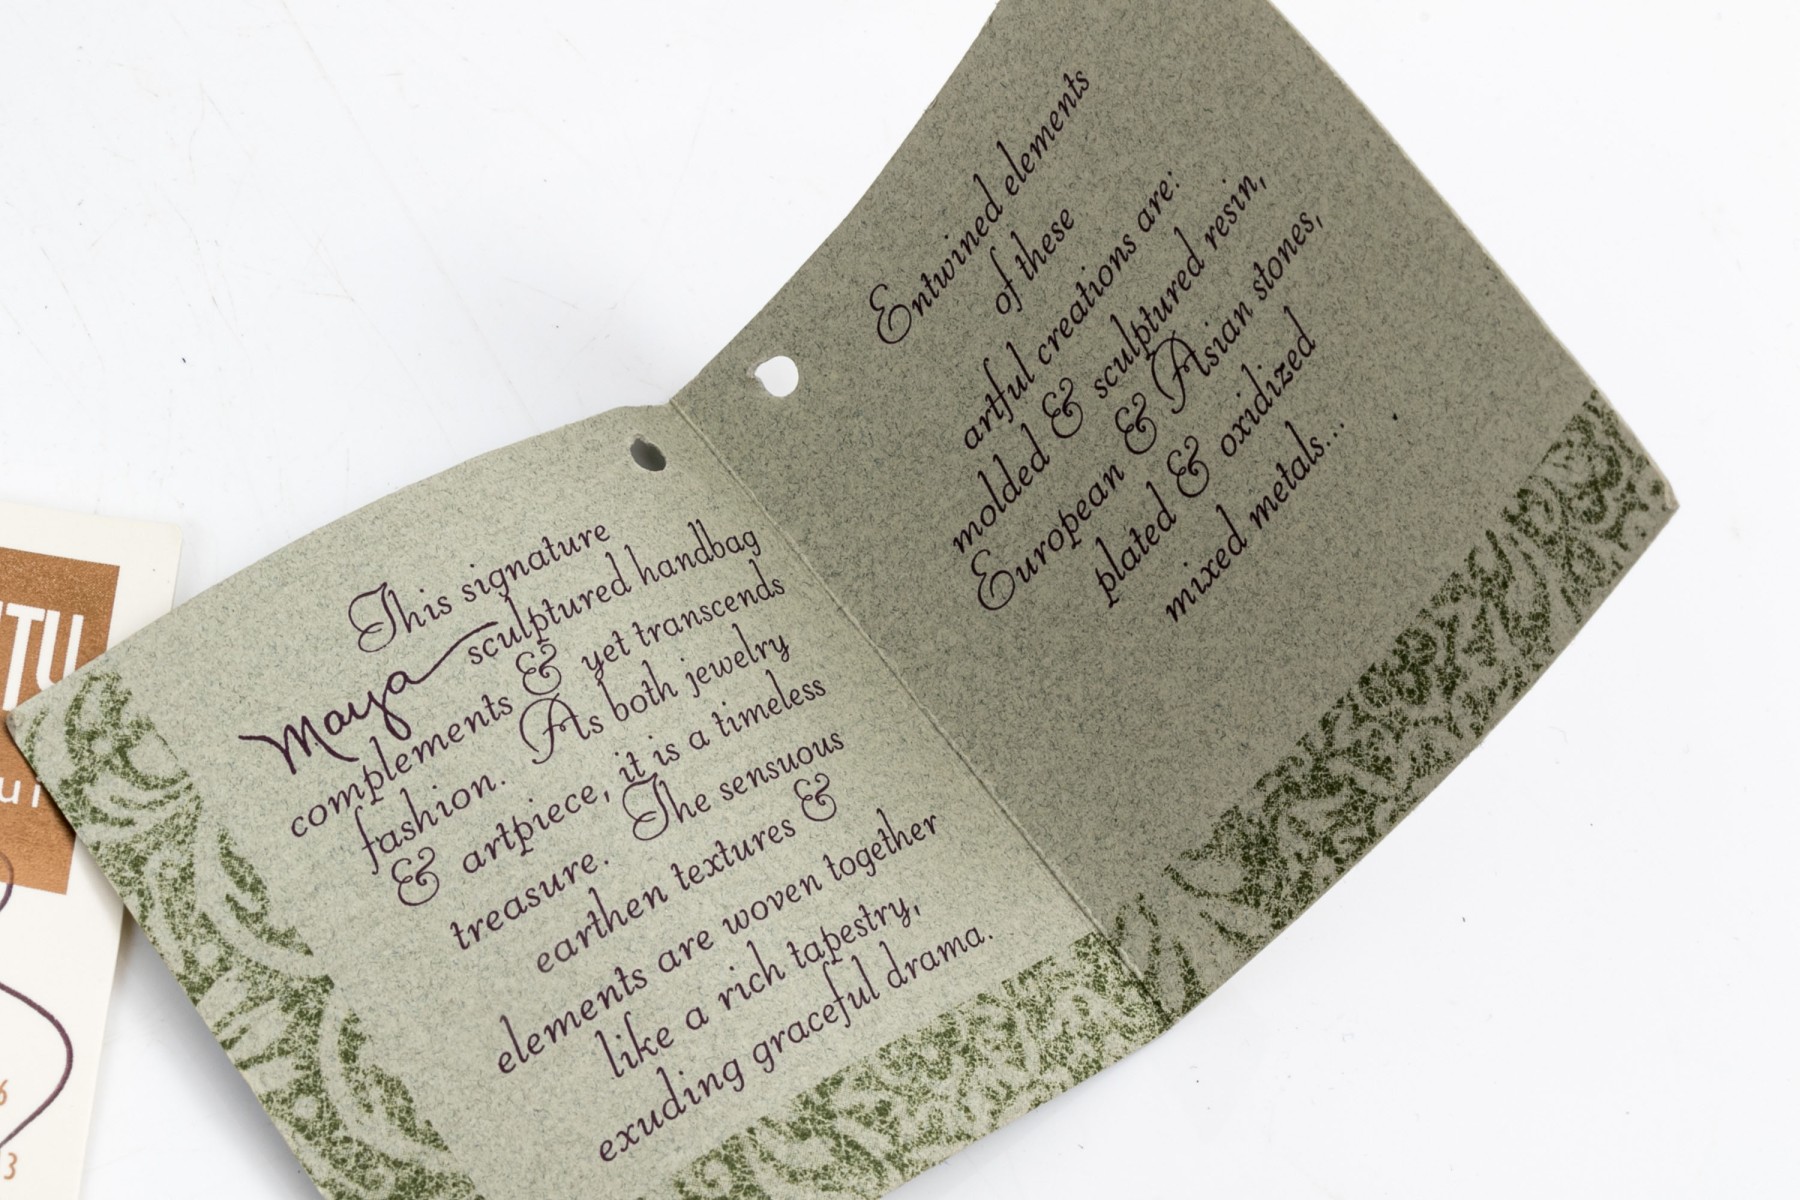 This signature
Maya sculptured handbag
complements & yet transcends
fashion. As both jewelry
& artpiece, it is a timeless
treasure. The sensuous
earthen textures &
elements are woven together
like a rich tapestry,
exuding graceful drama.
Entwined elements
of these
artful creations are:
molded & sculptured resin,
European & Asian stones,
plated & oxidized
mixed metals...